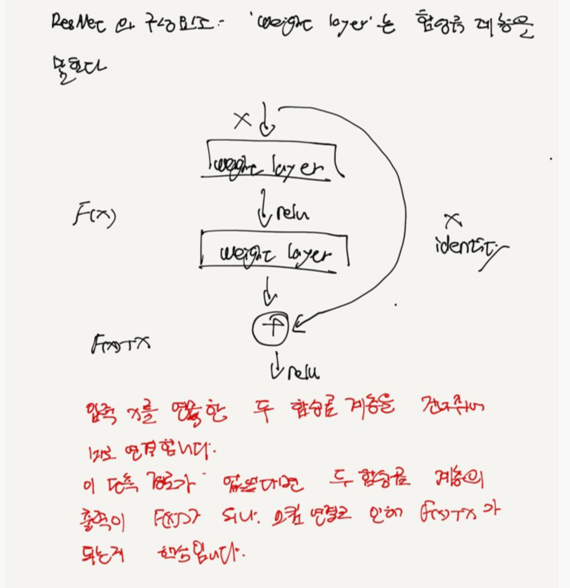 ResNet의 구성요소. 'weight layer'는 합성곱 계층을
말한다
x
weight layer
relu
F(x)
x
weight layer
identity
+
F(x)+x
relu
입력 x를 연속한 두 합성곱 계층을 건너뛰어
바로 연결합니다.
이 단축 경로가 없었다면 두 합성곱 계층의
출력이 F(x)가 되나, 스킵 연결로 인해 F(x)+x가
되는게 핵심입니다.